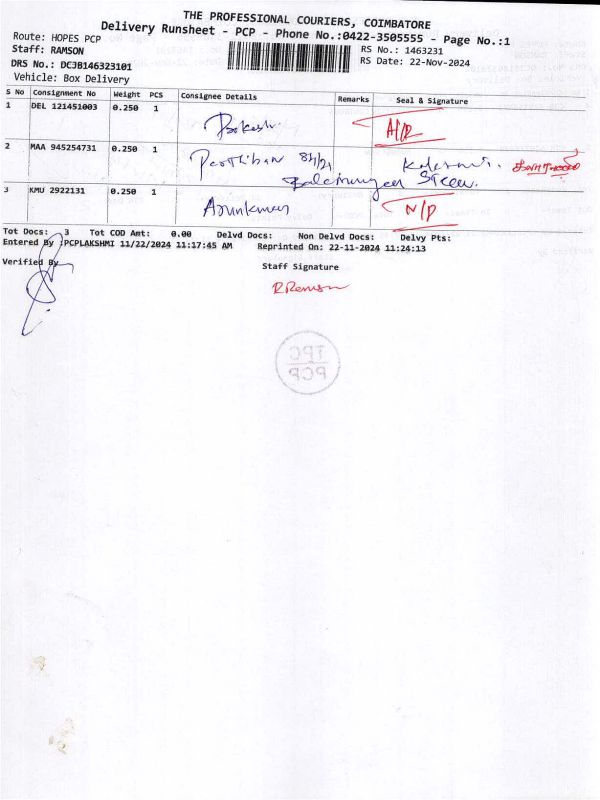 THE PROFESSIONAL COURIERS, COIMBATORE
Delivery Runsheet - PCP - Phone No.:0422-3505555 - Page No.:1
Route: HOPES PCP
RS No.: 1463231
Staff: RAMSON
RS Date: 22-Nov-2024
DRS No.: DCJB146323101
Vehicle: Box Delivery
S No Consignment No Weight PCS Consignee Details Remarks Seal & Signature
1 DEL 121451003 0.250 1 A/P
2 MAA 945254731 0.250 1 Parthiban
3 KMU 2922131 0.250 1 Arunkumar N/P
Tot Docs: 3 Tot COD Amt: 0.00 Delvd Docs: Non Delvd Docs: Delvy Pts:
Entered By :PCPLAKSHMI 11/22/2024 11:17:45 AM Reprinted On: 22-11-2024 11:24:13
Verified By
Staff Signature
TPC
PCP